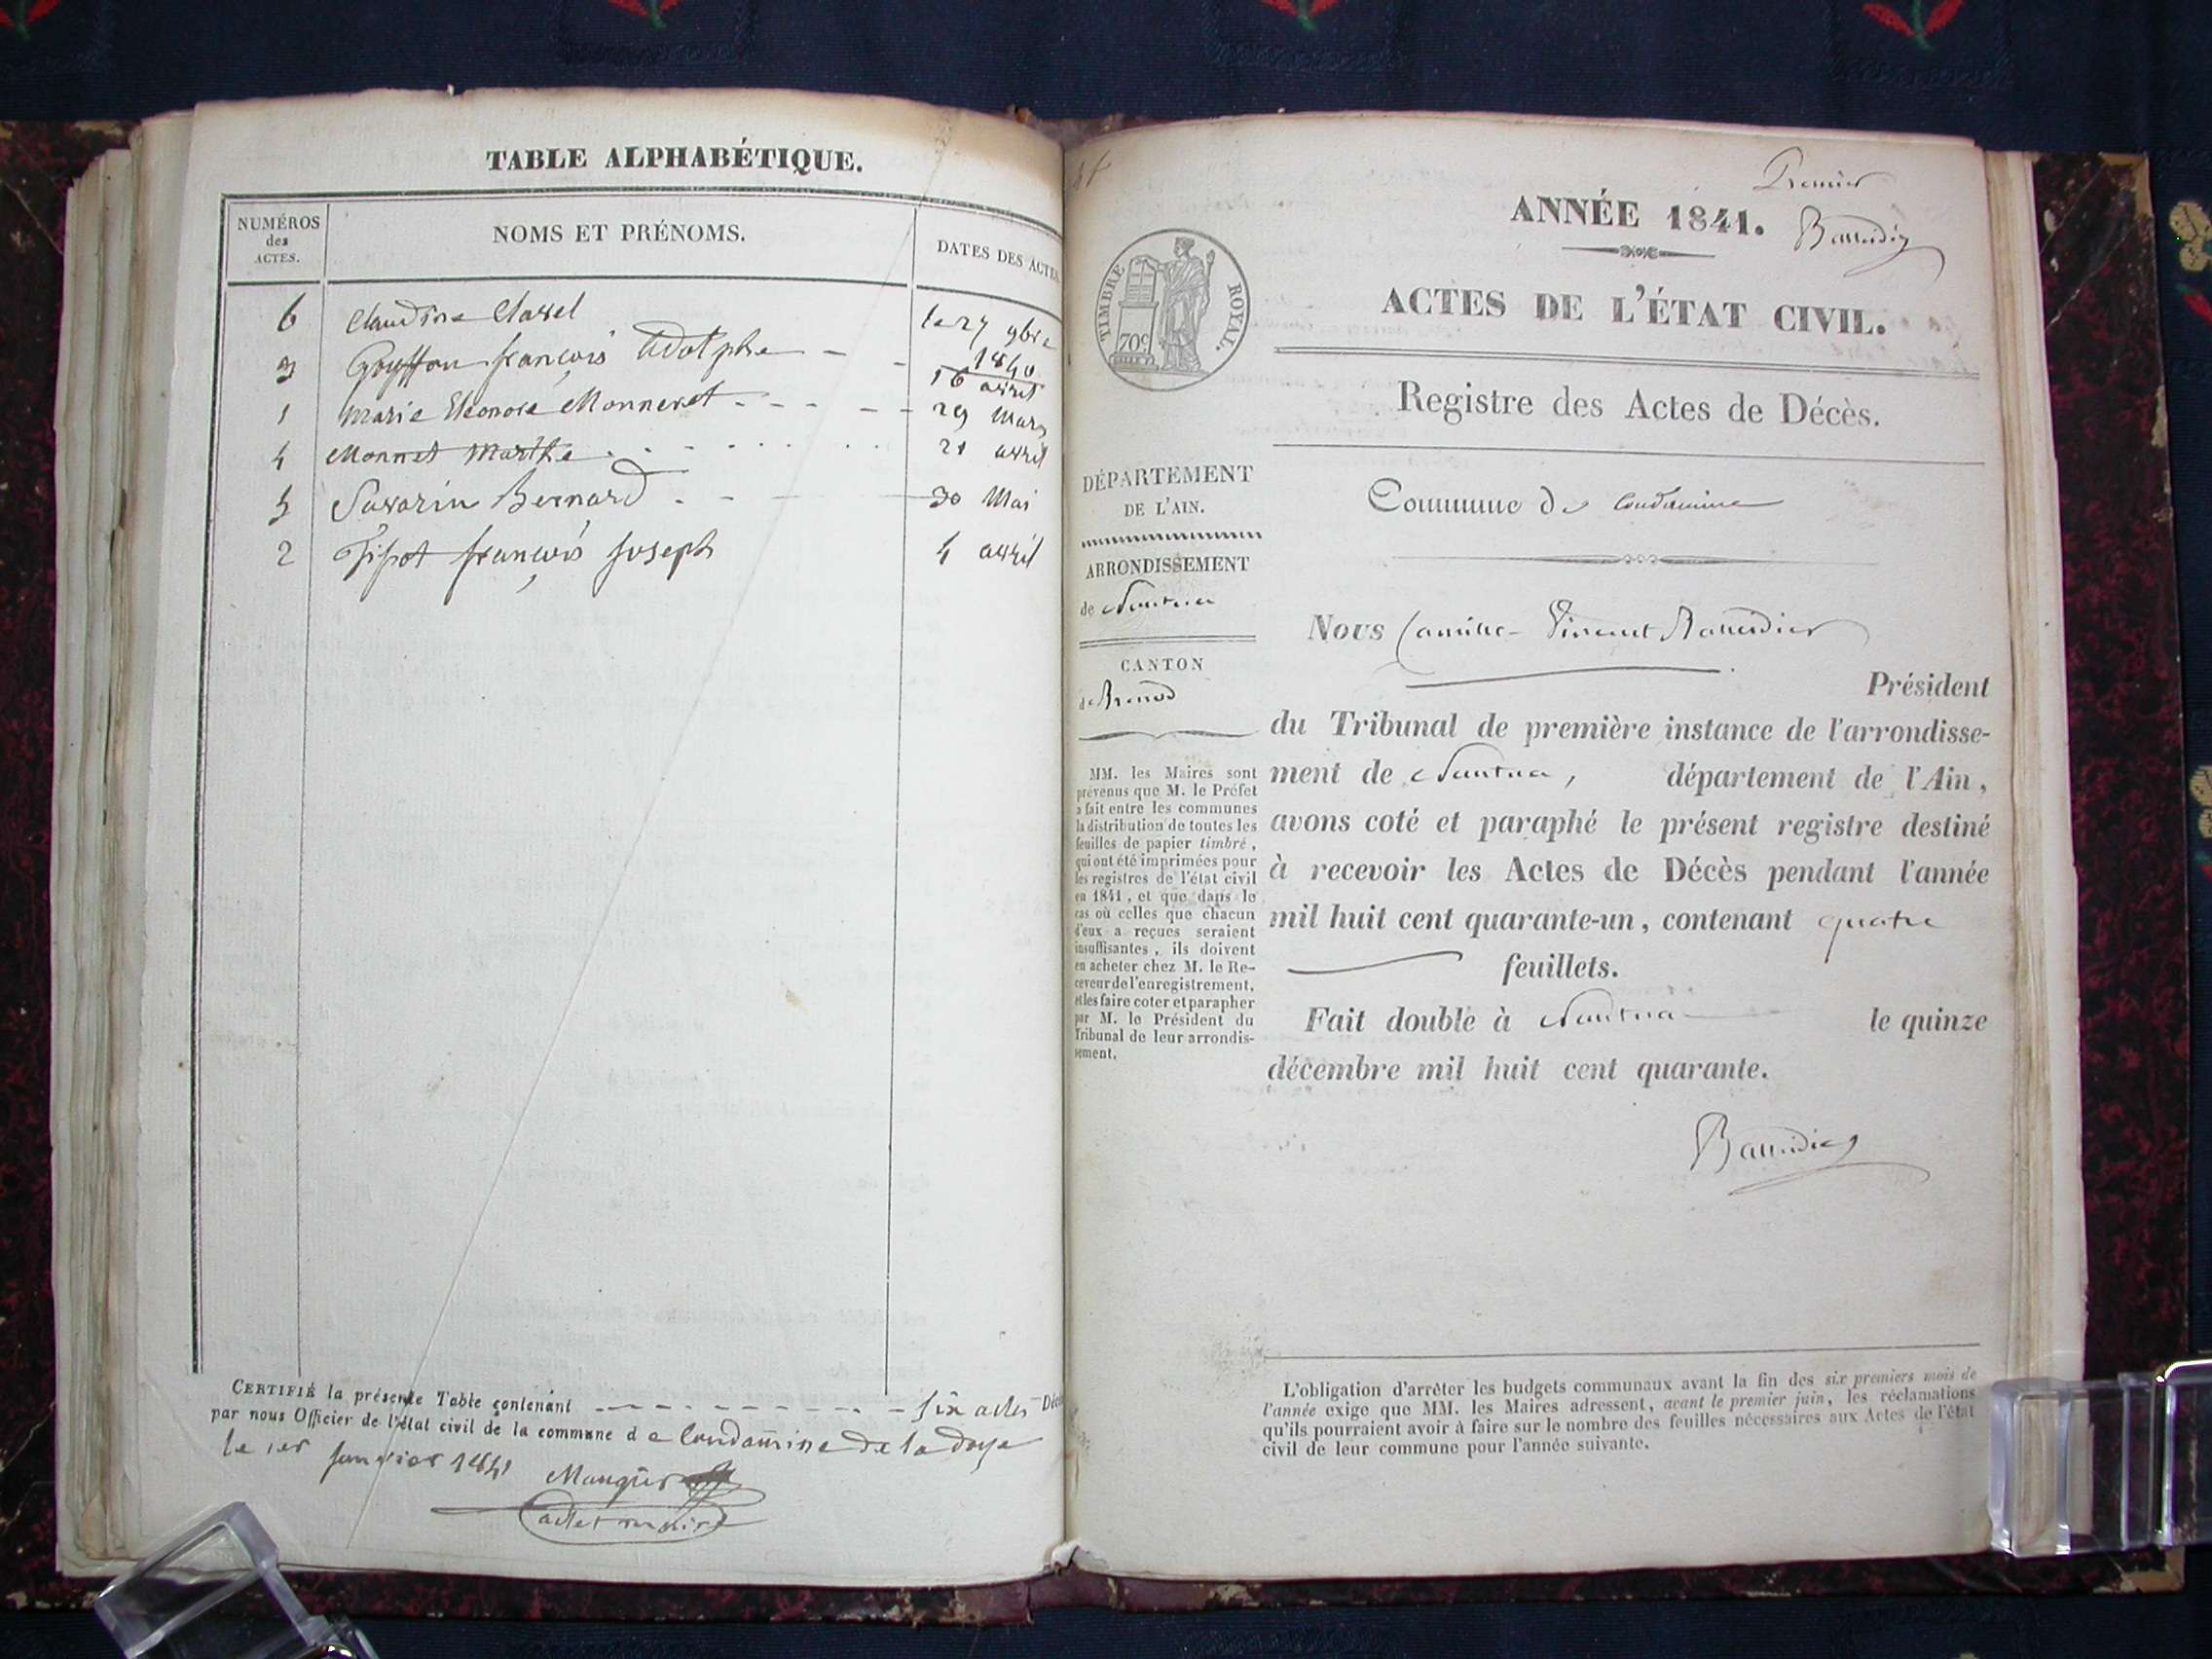 TABLE ALPHABÉTIQUE.
NUMÉROS
des
ACTES.
NOMS ET PRÉNOMS.
DATES DES ACTES
6 Claudine Clavel le 27 9bre
1840
3 Goyffon françois Adolphe 16 avril
1 Marie Eléonore Monneret 29 Mars
4 Monnet Marthe 21 avril
5 Savarin Bernard 30 Mai
2 françois Joseph 4 avril
CERTIFIÉ la présente Table contenant six actes Décès
par nous Officier de l'état civil de la commune de Condamine de la doye
le 1er janvier 1841
Premier
ANNÉE 1841.
TIMBRE ROYAL.
70c
ACTES DE L'ÉTAT CIVIL.
Registre des Actes de Décès.
Commune de Condamine
DÉPARTEMENT
DE L'AIN.
ARRONDISSEMENT
de Nantua
CANTON
de Brenod
MM. les Maires sont
prévenus que M. le Préfet
a fait entre les communes
la distribution de toutes les
feuilles de papier timbré,
qui ont été imprimées pour
les registres de l'état civil
en 1841, et que dans le
cas où celles que chacun
d'eux a reçues seraient
insuffisantes, ils doivent
en acheter chez M. le Re-
ceveur de l'enregistrement,
et les faire coter et parapher
par M. le Président du
Tribunal de leur arrondis-
sement.
Nous Camille Vincent
Président
du Tribunal de première instance de l'arrondisse-
ment de Nantua, département de l'Ain,
avons coté et paraphé le présent registre destiné
à recevoir les Actes de Décès pendant l'année
mil huit cent quarante-un, contenant quatre
feuillets.
Fait double à Nantua le quinze
décembre mil huit cent quarante.
L'obligation d'arrêter les budgets communaux avant la fin des six premiers mois de
l'année exige que MM. les Maires adressent, avant le premier juin, les réclamations
qu'ils pourraient avoir à faire sur le nombre des feuilles nécessaires aux Actes de l'état
civil de leur commune pour l'année suivante.